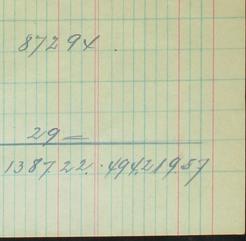 87294.
29=
138722.49421957